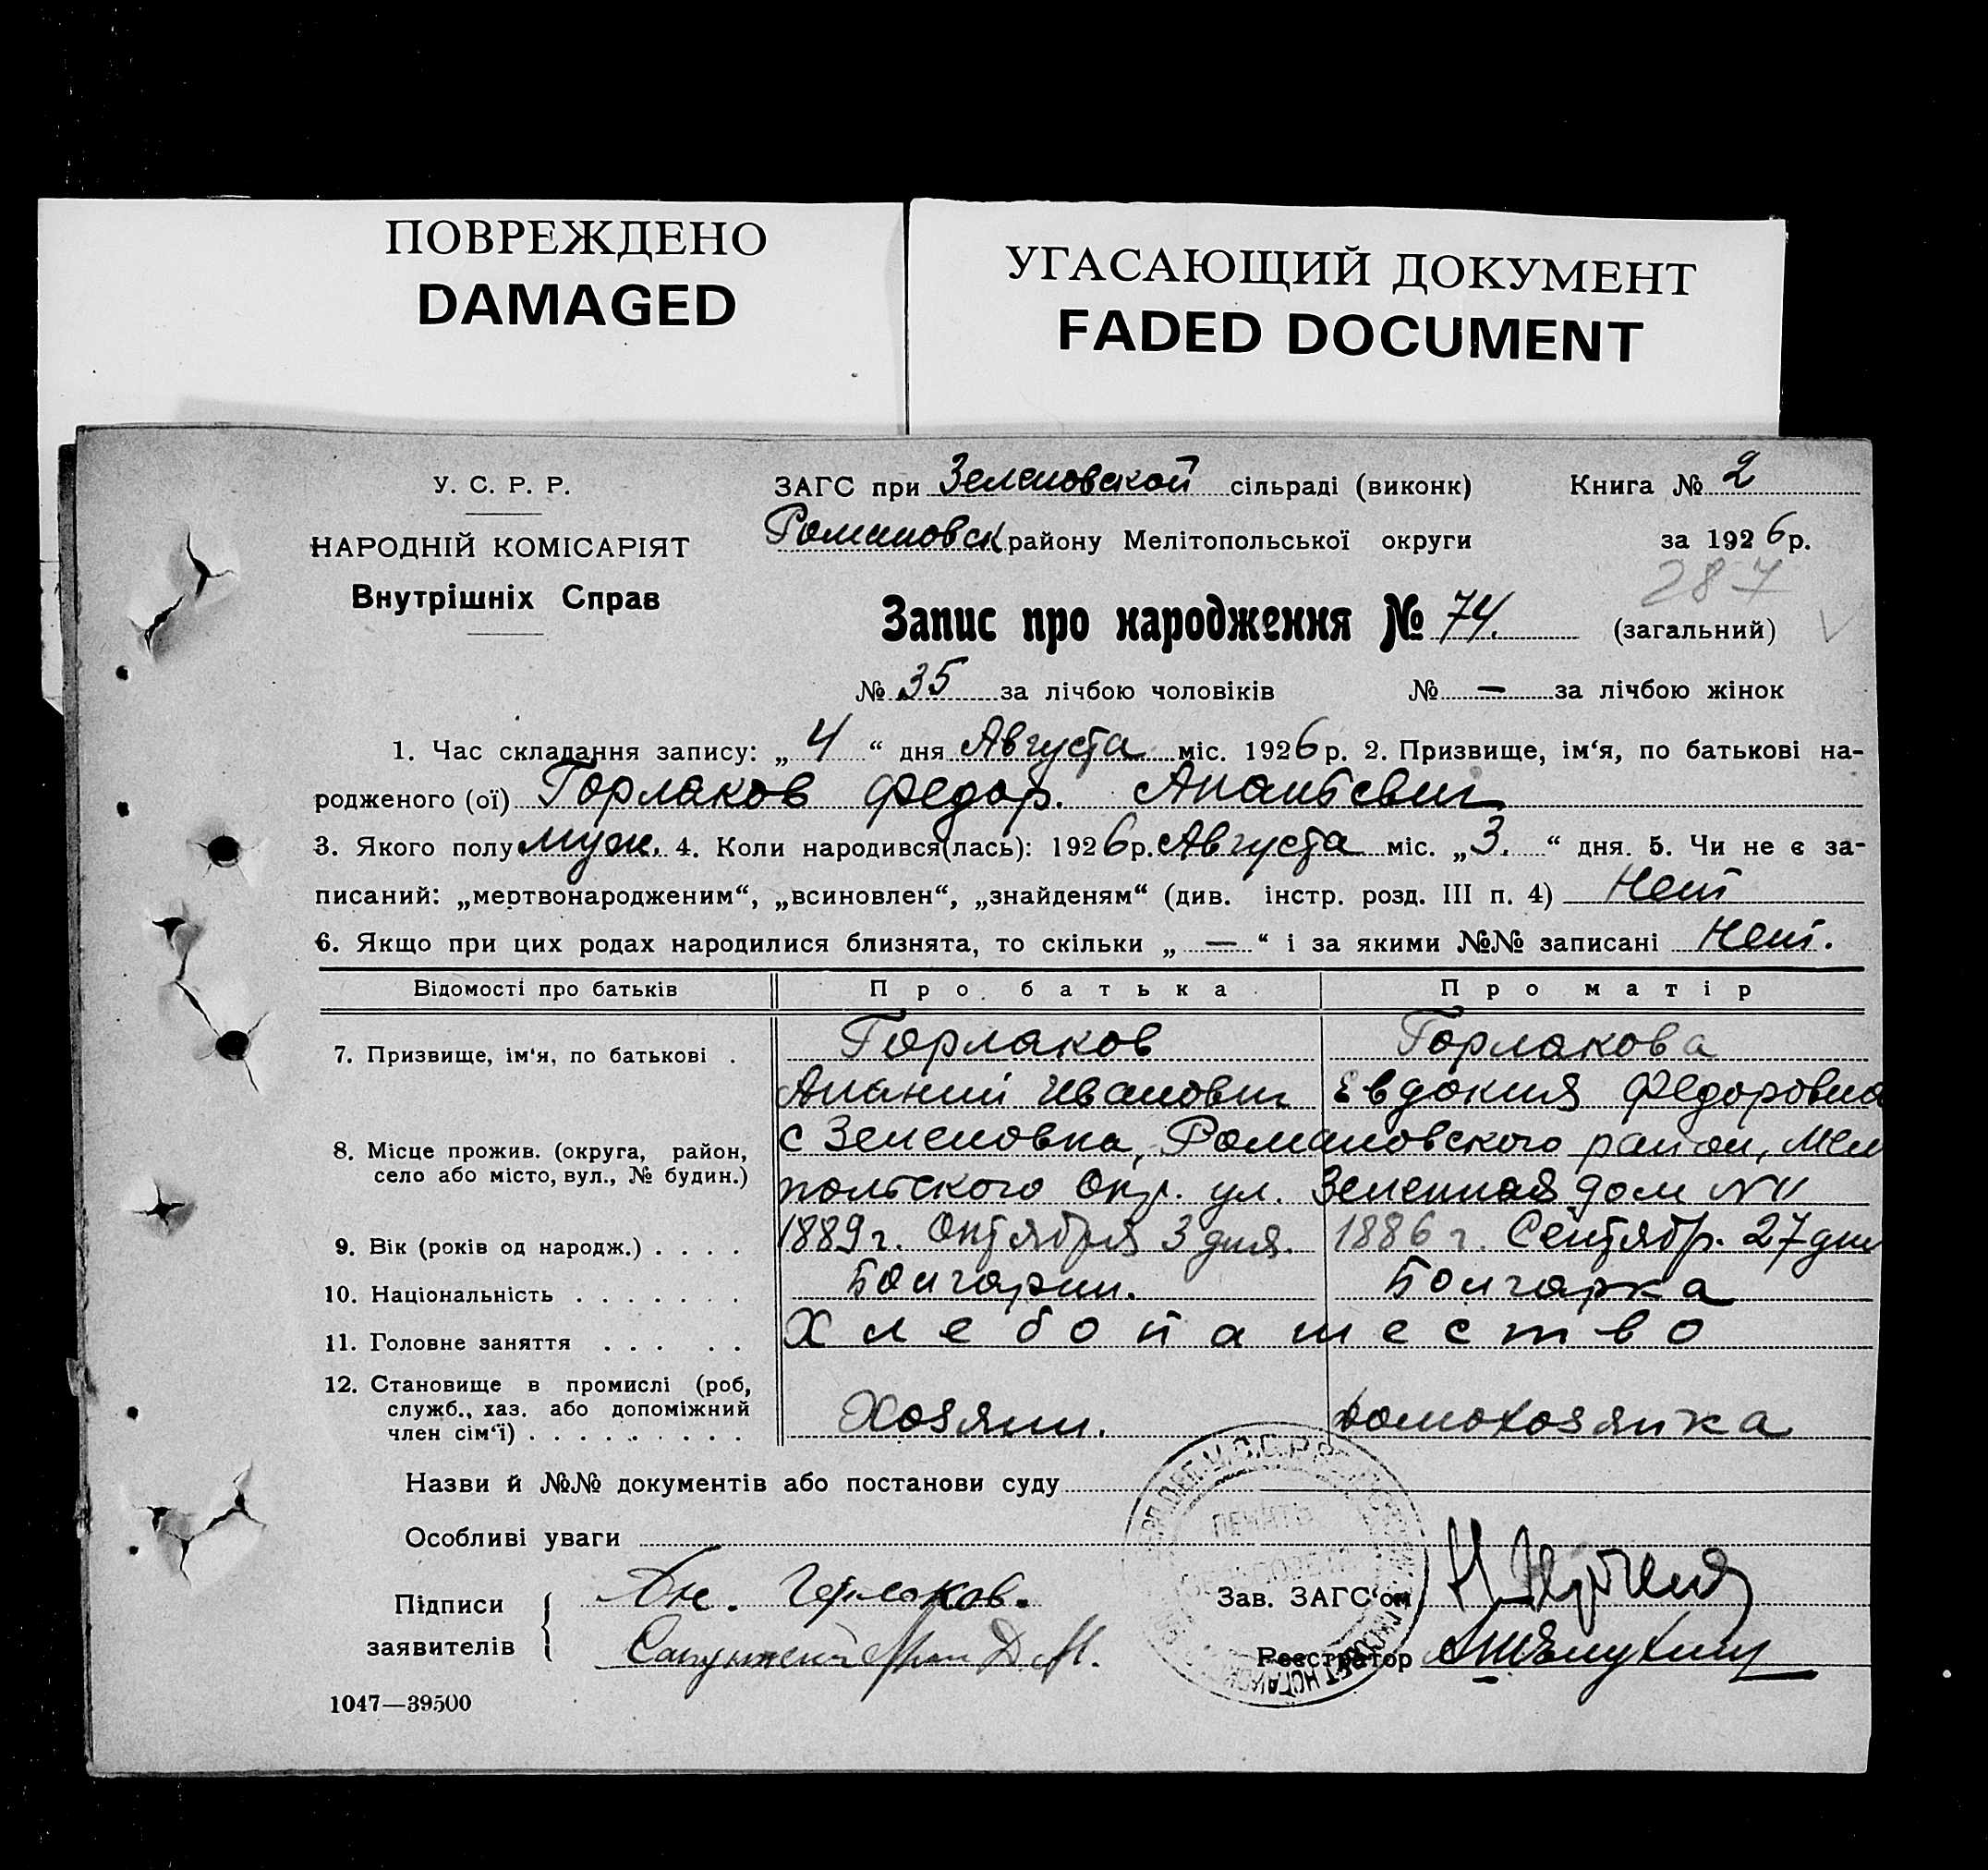 ПОВРЕЖДЕНО
DAMAGED
УГАСАЮЩИЙ ДОКУМЕНТ
FADED DOCUMENT
У. С. Р. Р.
НАРОДНІЙ КОМІСАРІЯТ
Внутрішніх Справ
ЗАГС при Зеленовской сільраді (виконк) Книга № 2
Романовск району Мелітопольської округи за 1926 р.
287
Запис про народження № 74. (загальний)
№ 35 за лічбою чоловіків № — за лічбою жінок
1. Час складання запису: „ 4 “ дня Августа міс. 1926 р. 2. Призвище, ім‘я, по батькові на-
родженого (ої) Горлаков Федор. Ананьевич
3. Якого полу муж. 4. Коли народився(лась): 1926 р. Августа міс. „ 3. “ дня. 5. Чи не є за-
писаний: „мертвонародженим“, „всиновлен“, „знайденям“ (див. інстр. розд. III п. 4) Нет
6. Якщо при цих родах народилися близнята, то скільки „ — “ і за якими №№ записані Нет.
Відомості про батьків Про батька Про матір
7. Призвище, ім‘я, по батькові . Горлаков Горлакова
Ананий Иванович Евдокия Федоровна
8. Місце прожив. (округа, район, село або місто, вул., № будин.) с Зеленовка, Романовского район, Мел
польского Окр. ул. Зеленная дом N 11
9. Вік (років од народж.) . . . . 1889 г. Октября 3 дня. 1886 г. Сентябр. 27 дня
10. Національність . . . . . . . Болгарин. Болгарка
11. Головне заняття . . . . . Хлебопашество
12. Становище в промислі (роб, служб., хаз. або допоміжний член сім‘ї) . . . . . . . . . Хозяин. домохозяйка
Назви й №№ документів або постанови суду
Особливі уваги
ПЕЧАТЬ
Підписи
заявителів
Ан. Горлаков.
Зав. ЗАГС‘ом
Реєстратор
1047—39500